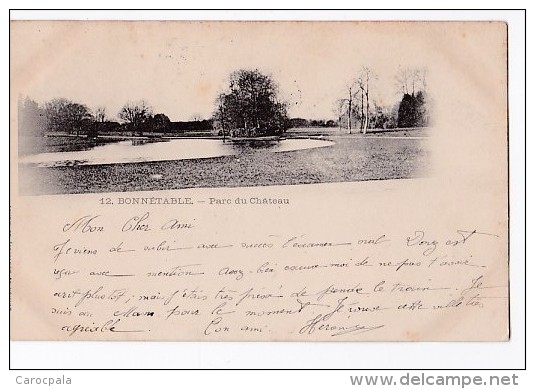 12. BONNÉTABLE. — Parc du Château
Mon Cher Ami
Je viens de subir avec succès l'examen oral Dony est
reçu avec mention assez bien excuse moi de ne pas t'avoir
écrit plus tôt; mais j'étais très pressé de prendre le train. Je
suis au Mans pour le moment. Je trouve cette ville très
agréable. Ton ami
Carocpala
http://www.delcampe.net